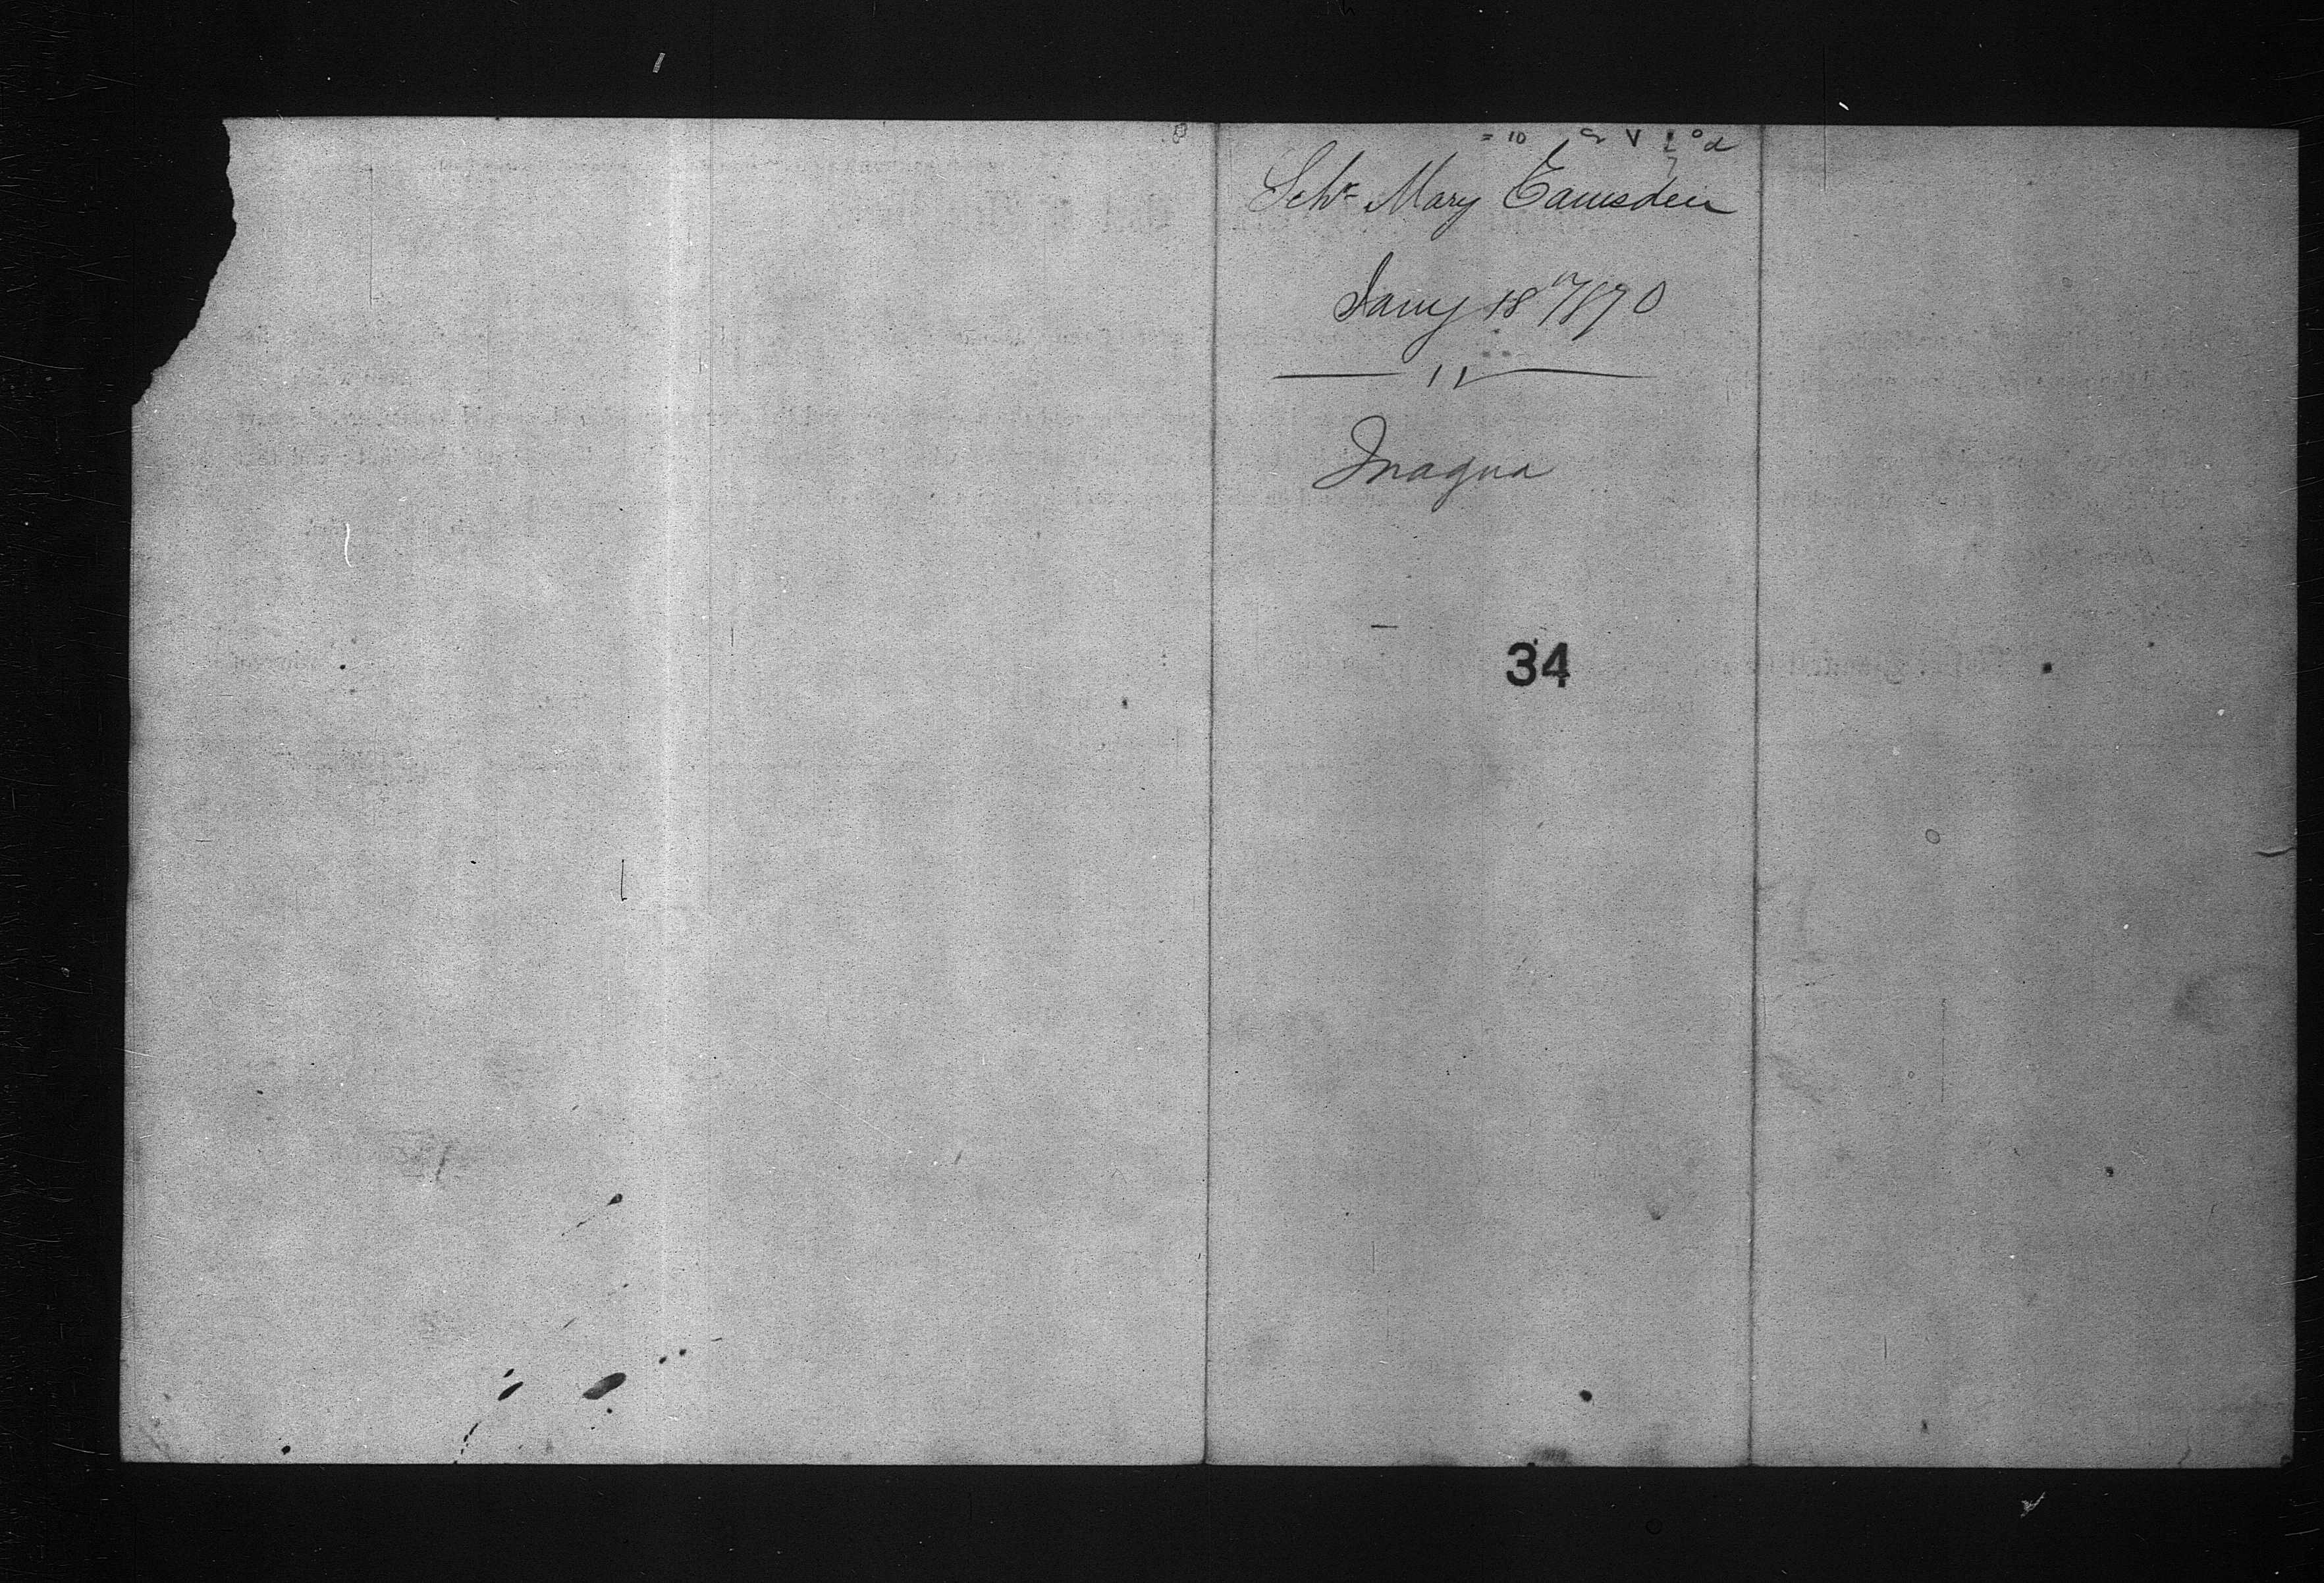 Schr Mary Eamsden
Jany 18th/870
11
Inagua
34